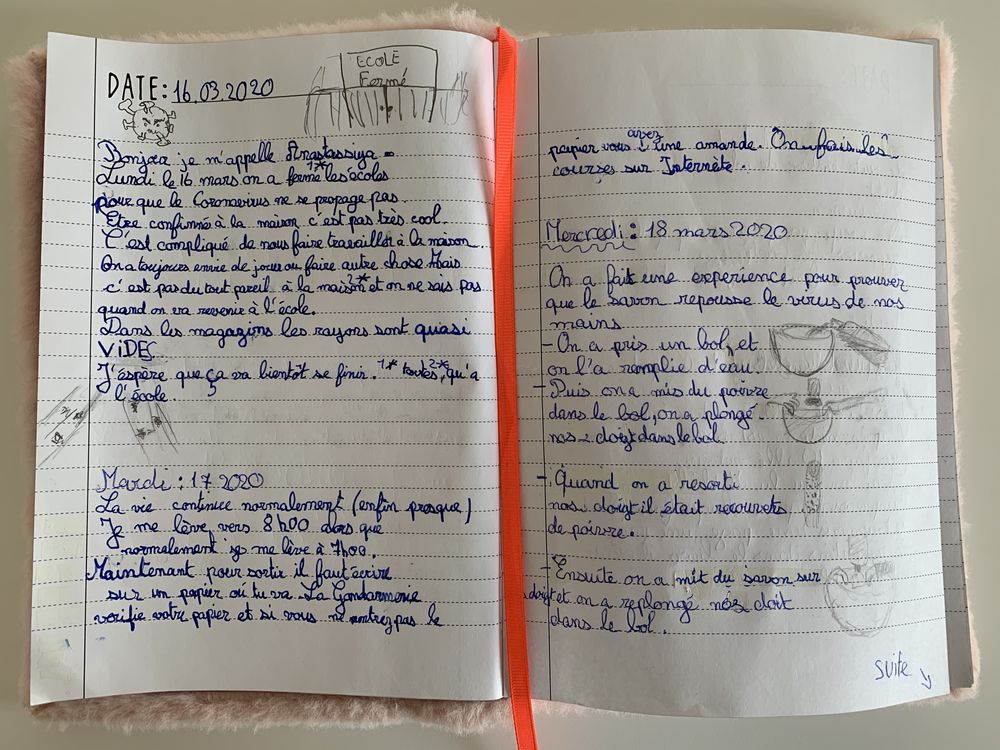 DATE: 16.03.2020
ECOLE
Fermé
Bonjour je m'appelle Anastassiya.
Lundi le 16 mars on a fermé 1* les écoles
pour que le Coronavirus ne se propage pas.
Etre confinné à la maison c'est pas très cool.
C'est compliqué de nous faire travailler à la maison.
On a toujours envie de jouer ou faire autre chose Mais
c'est pas du tout pareil 2* à la maison et on ne sais pas
quand on va revenir à l'école.
Dans les magazins les rayons sont quasi
ViDES
J'éspère que ça va bientôt se finir. 1* toutes, 2* qu'a
l'école.
Mardi : 17 2020
La vie continue normalement (enfin presque)
Je me lève vers 8h00 alors que
normalement je me lève à 7h00.
Maintenant pour sortir il faut écrire
sur un papier où tu va. La Gendarmerie
vérifie votre papier et si vous ne montrez pas le
papier vous avez une amande. On fais les
courses sur Internète.
Mercredi : 18 mars 2020
On a fait une experience pour prouver
que le savon repousse le virus de nos
mains
- On a pris un bol, et
on l'a remplie d'eau.
- Puis on a mis du poivre
dans le bol, on a plongé
nos doigt dans le bol.
- Quand on a resorti
nos doigt il était recouverts
de poivre.
- Ensuite on a mit du savon sur
doigt et on a replongé nos doit
dans le bol.
suite